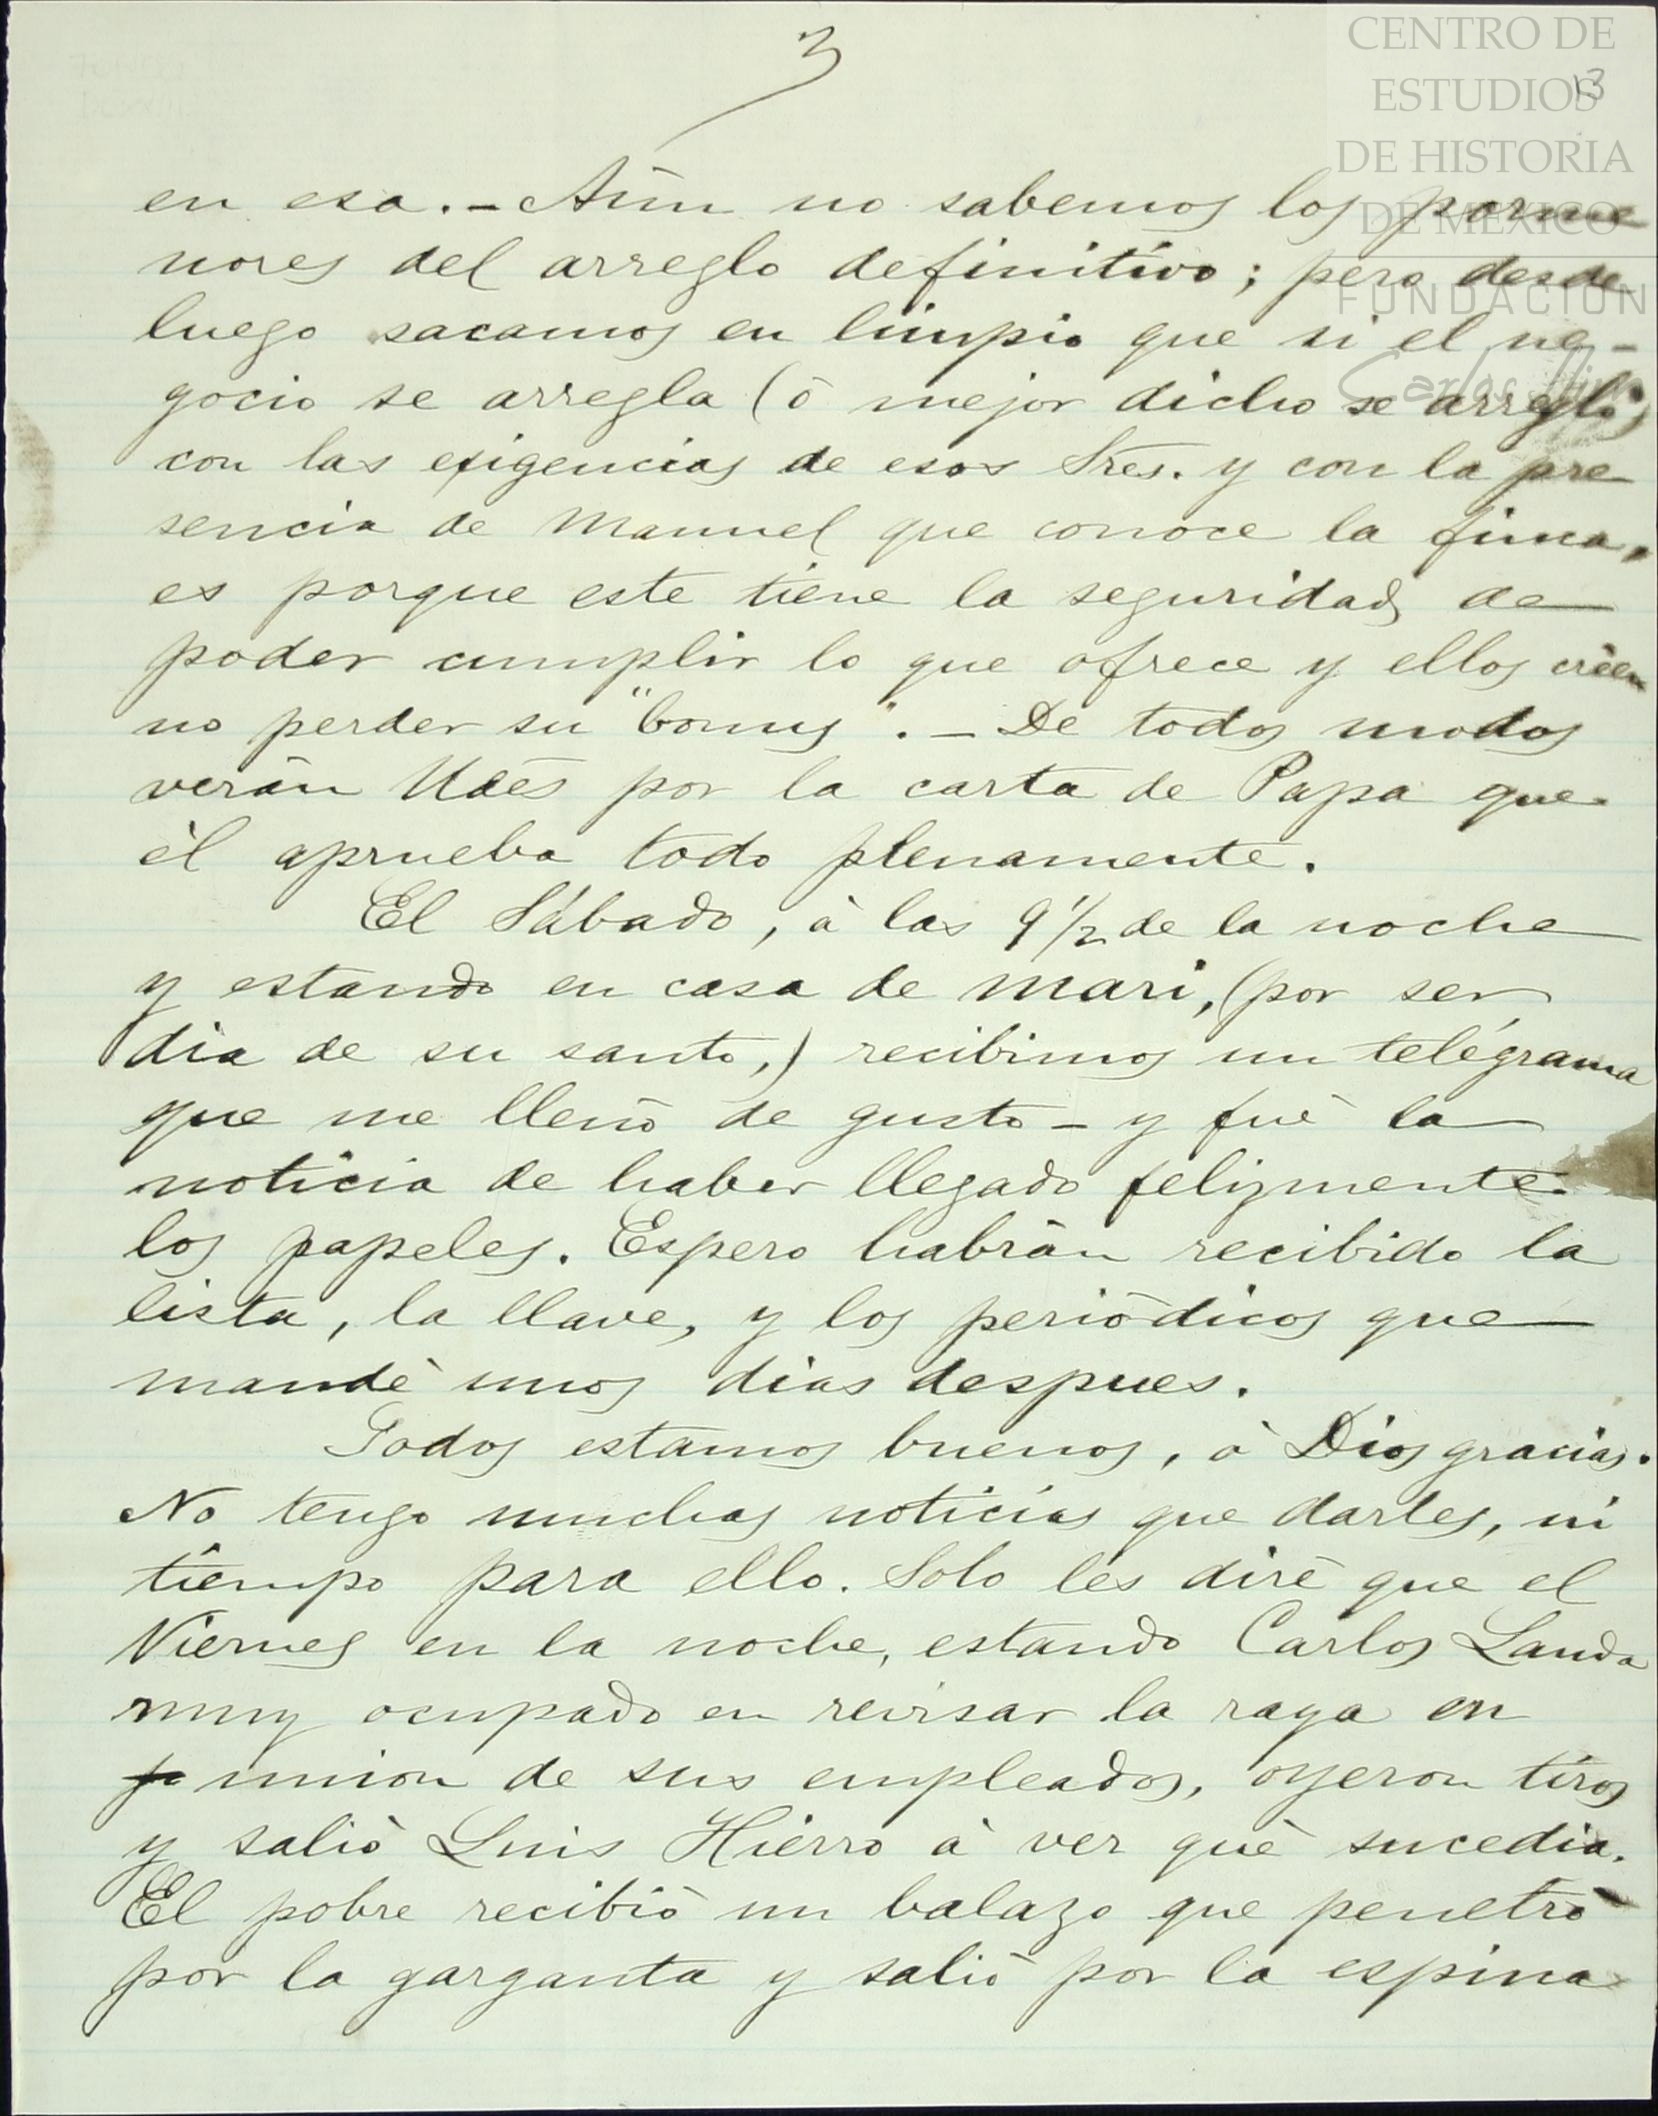 3
CENTRO DE
ESTUDIOS
13
DE HISTORIA
DE MÉXICO
FUNDACIÓN
Carlos Slim
en esa. - Aún no sabemos los porme
nores del arreglo definitivo; pero desde
luego sacamos en limpio que si el ne-
gocio se arregla (ó mejor dicho se arregló)
con las exigencias de esos Sres. y con la pre
sencia de Manuel que conoce la finca,
es porque este tiene la seguridad de
poder cumplir lo que ofrece y ellos créen
no perder su "bonus". - De todos modos
verán Udes por la carta de Papa que
él aprueba todo plenamente.
El Sábado, á las 9 1/2 de la noche
y estando en casa de Mari, (por ser
dia de su santo,) recibimos un telégrama
que me llenó de gusto - y fué la
noticia de haber llegado felizmente
los papeles. Espero habrán recibido la
lista, la llave, y los periódicos que
mandé unos dias despues.
Todos estamos buenos, á Dios gracias.
No tengo muchas noticias que darles, ni
tiempo para ello. Solo les diré que el
Viernes en la noche, estando Carlos Landa
muy ocupado en revisar la raya en
union de sus empleados, oyeron tiros
y salió Luis Hierro á ver qué sucedia.
El pobre recibió un balazo que penetró
por la garganta y salió por la espina